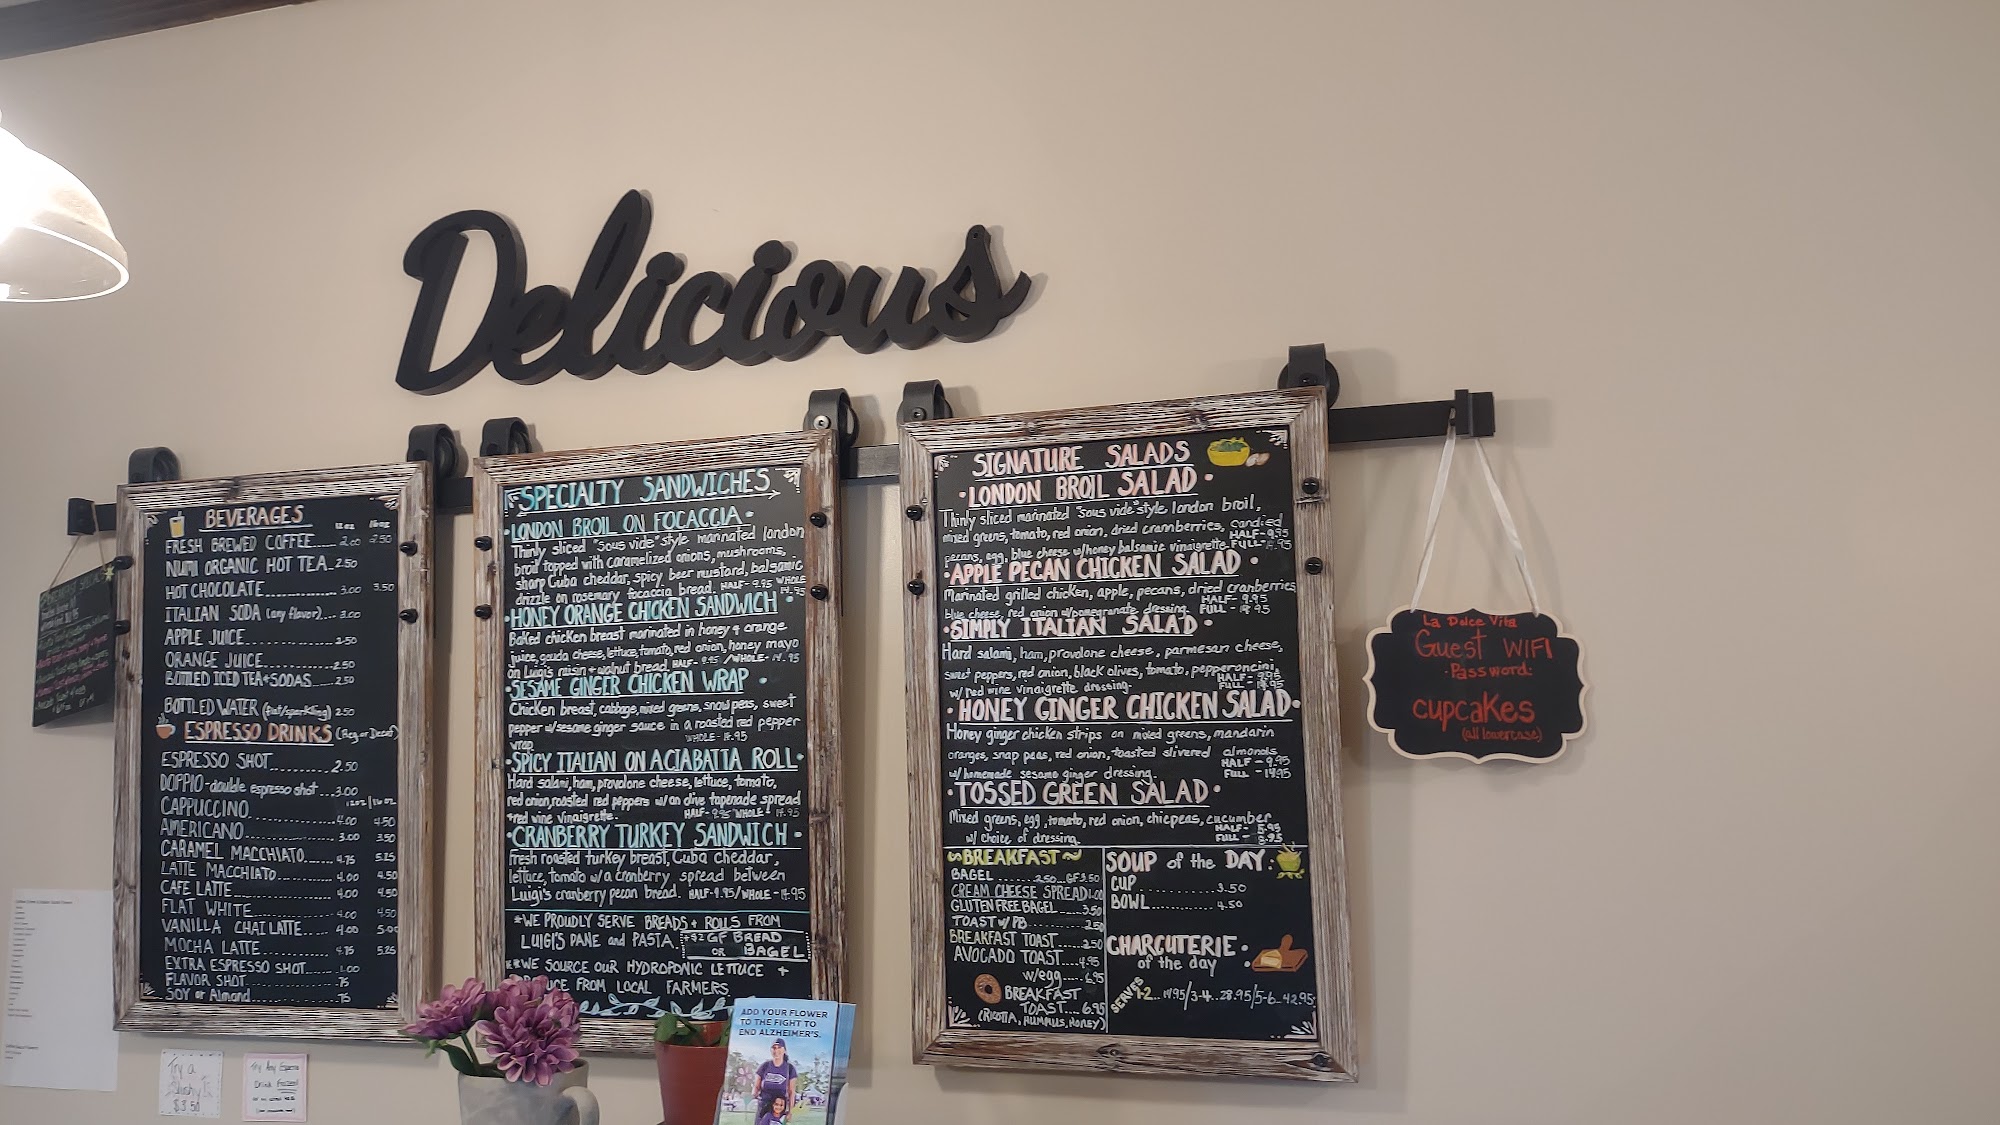 Delicious
BEVERAGES
12oz 16oz
FRESH BREWED COFFEE 2.00 2.50
NUMI ORGANIC HOT TEA 2.50
HOT CHOCOLATE 3.00 3.50
ITALIAN SODA (any flavor) 3.00
APPLE JUICE 2.50
ORANGE JUICE 2.50
BOTTLED ICED TEA + SODAS 2.50
BOTTLED WATER (flat/sparkling) 2.50
ESPRESSO DRINKS (Reg. or Decaf)
ESPRESSO SHOT 2.50
DOPPIO - double espresso shot 3.00
12oz / 16oz
CAPPUCCINO 4.00 4.50
AMERICANO 3.00 3.50
CARAMEL MACCHIATO 4.75 5.25
LATTE MACCHIATO 4.00 4.50
CAFE LATTE 4.00 4.50
FLAT WHITE 4.00 4.50
VANILLA CHAI LATTE 4.00 5.00
MOCHA LATTE 4.75 5.25
EXTRA ESPRESSO SHOT 1.00
FLAVOR SHOT .75
SOY or Almond .75
SPECIALTY SANDWICHES
•LONDON BROIL ON FOCACCIA•
Thinly sliced "Sous vide" style marinated london
broil topped with caramelized onions, mushrooms,
sharp Cuba cheddar, spicy beer mustard, balsamic
drizzle on rosemary focaccia bread. HALF - 9.95 WHOLE 14.95
•HONEY ORANGE CHICKEN SANDWICH•
Baked chicken breast marinated in honey + orange
juice, gouda cheese, lettuce, tomato, red onion, honey mayo
on Luigi's raisin + walnut bread. HALF - 9.95 / WHOLE - 14.95
•SESAME GINGER CHICKEN WRAP•
Chicken breast, cabbage, mixed greens, snow peas, sweet
pepper w/sesame ginger sauce in a roasted red pepper
wrap WHOLE - 14.95
•SPICY ITALIAN ON A CIABATTA ROLL•
Hard salami, ham, provolone cheese, lettuce, tomato,
red onion, roasted red peppers w/an olive tapenade spread
+ red wine vinaigrette. HALF - 9.95 WHOLE - 14.95
•CRANBERRY TURKEY SANDWICH•
Fresh roasted turkey breast, Cuba cheddar,
lettuce, tomato w/a cranberry spread between
Luigi's cranberry pecan bread. HALF - 9.95 / WHOLE - 14.95
*WE PROUDLY SERVE BREADS + ROLLS FROM
LUIGI'S PANE and PASTA. +$2 GF BREAD
OR BAGEL
**WE SOURCE OUR HYDROPONIC LETTUCE +
PRODUCE FROM LOCAL FARMERS
SIGNATURE SALADS
•LONDON BROIL SALAD•
Thinly sliced marinated "Sous vide" style london broil,
mixed greens, tomato, red onion, dried cranberries, candied
HALF - 9.95
pecans, egg, blue cheese w/honey balsamic vinaigrette. FULL - 14.95
•APPLE PECAN CHICKEN SALAD•
Marinated grilled chicken, apple, pecans, dried cranberries
HALF - 9.95
blue cheese, red onion w/pomegranate dressing. FULL - 14.95
•SIMPLY ITALIAN SALAD•
Hard salami, ham, provolone cheese, parmesan cheese,
sweet peppers, red onion, black olives, tomato, pepperoncini,
HALF - 9.95
w/red wine vinaigrette dressing. FULL - 14.95
•HONEY GINGER CHICKEN SALAD•
Honey ginger chicken strips on mixed greens, mandarin
oranges, snap peas, red onion, toasted slivered almonds
HALF - 9.95
w/ homemade sesame ginger dressing. FULL - 14.95
•TOSSED GREEN SALAD•
Mixed greens, egg, tomato, red onion, chicpeas, cucumber
HALF - 5.95
w/ choice of dressing. FULL -
~BREAKFAST~
BAGEL 2.50 GF 3.50
CREAM CHEESE SPREAD 1.00
GLUTEN FREE BAGEL 3.50
TOAST w/ PB 2.50
BREAKFAST TOAST 2.50
AVOCADO TOAST 4.95
w/egg 6.95
BREAKFAST
TOAST 6.95
(RICOTTA, HUMMUS, HONEY)
SOUP of the DAY:
CUP 3.50
BOWL 4.50
CHARCUTERIE•
of the day
SERVES
1-2 14.95/3-4 28.95/5-6 42.95
La Dolce Vita
Guest WIFI
•Password:
cupcakes
(all lowercase)
Try a
Slushy
$3.50
Try Any Espresso
Drink Frozen!
ADD YOUR FLOWER
TO THE FIGHT TO
END ALZHEIMER'S.